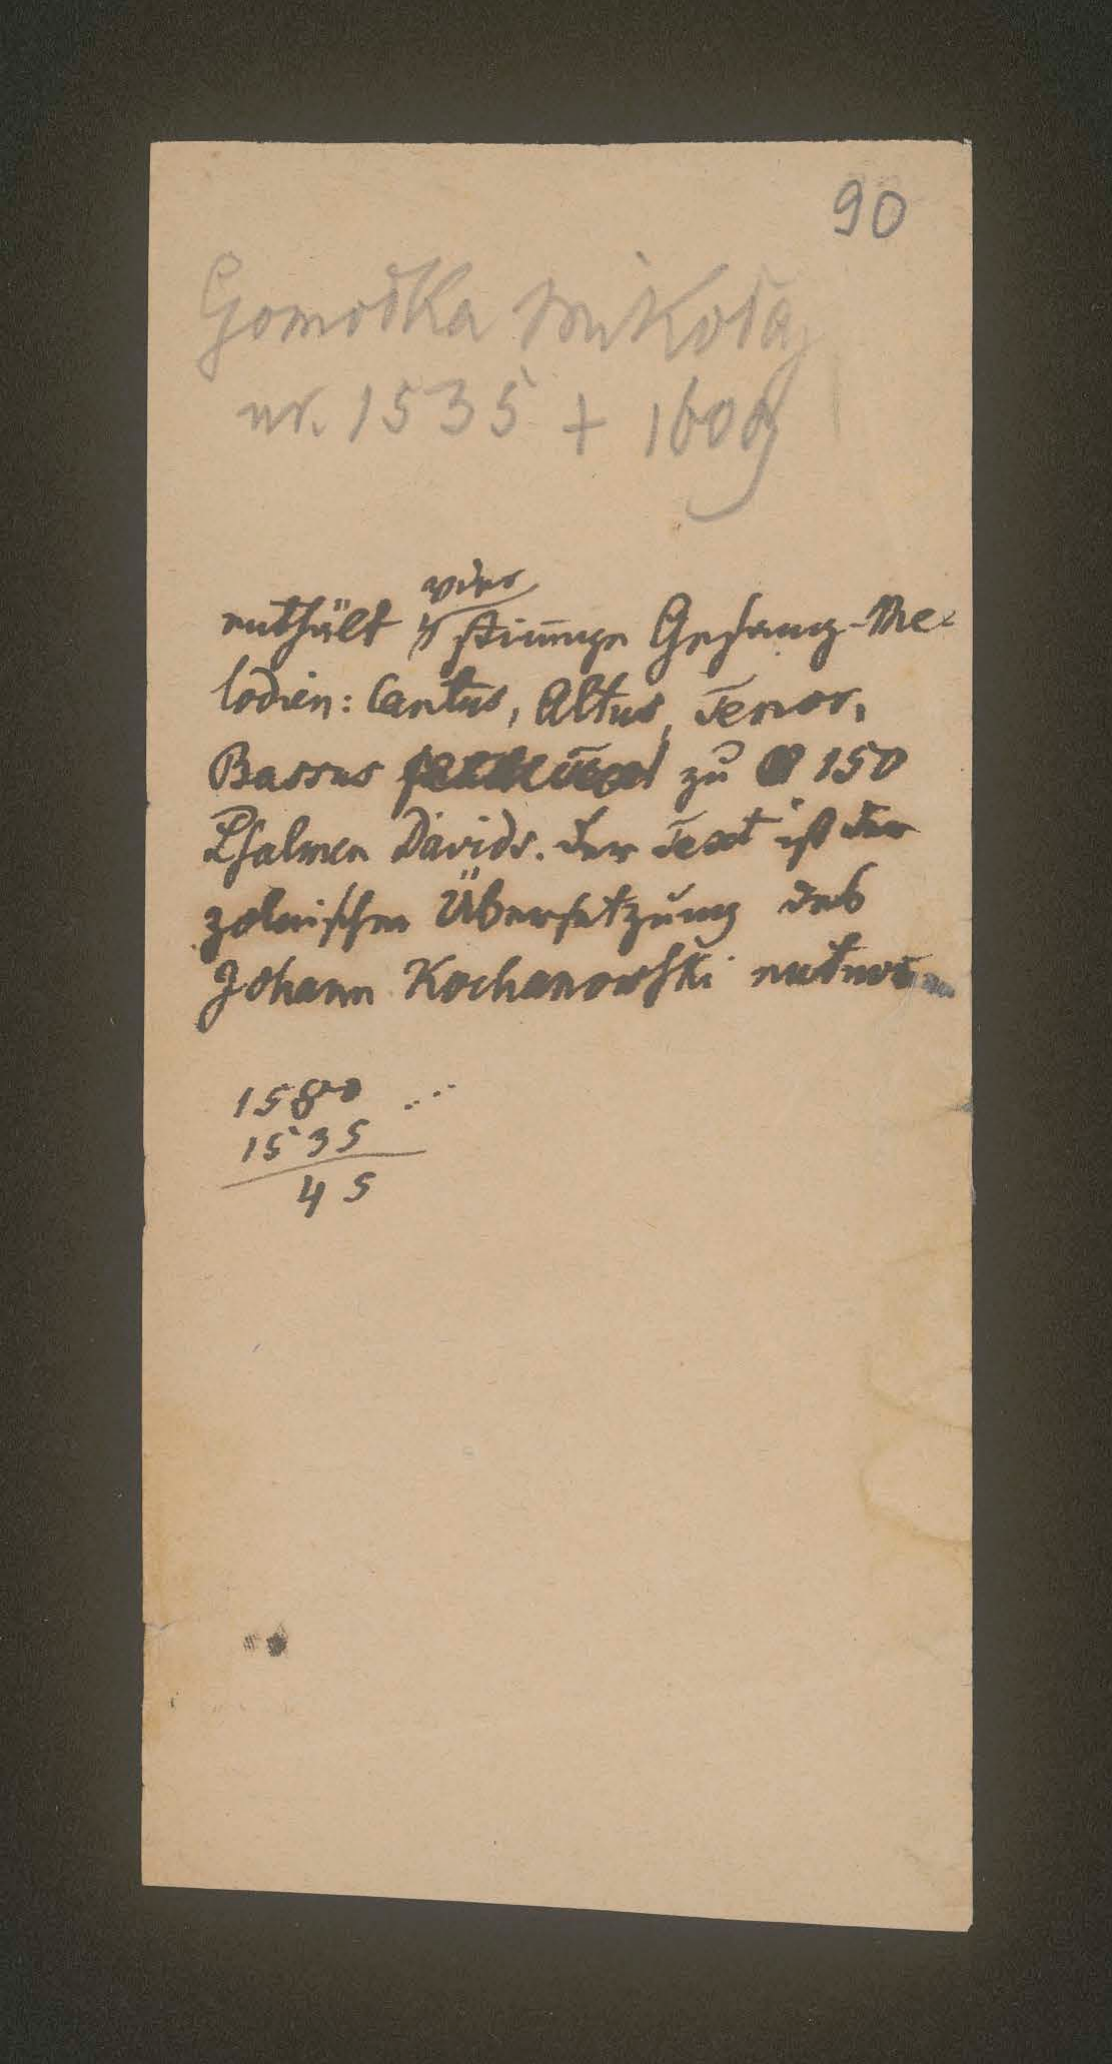 90
Gomołka Mikołaj
ur. 1535 + 1609
vier
enthält 4 stimmige Gesang-Me-
lodien: Cantus, Altus, Tenor,
Bassus zu 150
Psalmen Davids. Der Text ist der
polnischen Übersetzung des
Johann Kochanowski
1580
1535
45